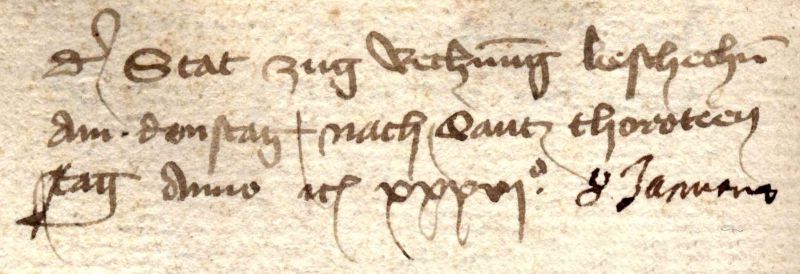 d' Stat zug Rechnūg beschechn̄
Am donstag nach Sant thoroteen
tag Anno xxxvi° 8 Januario